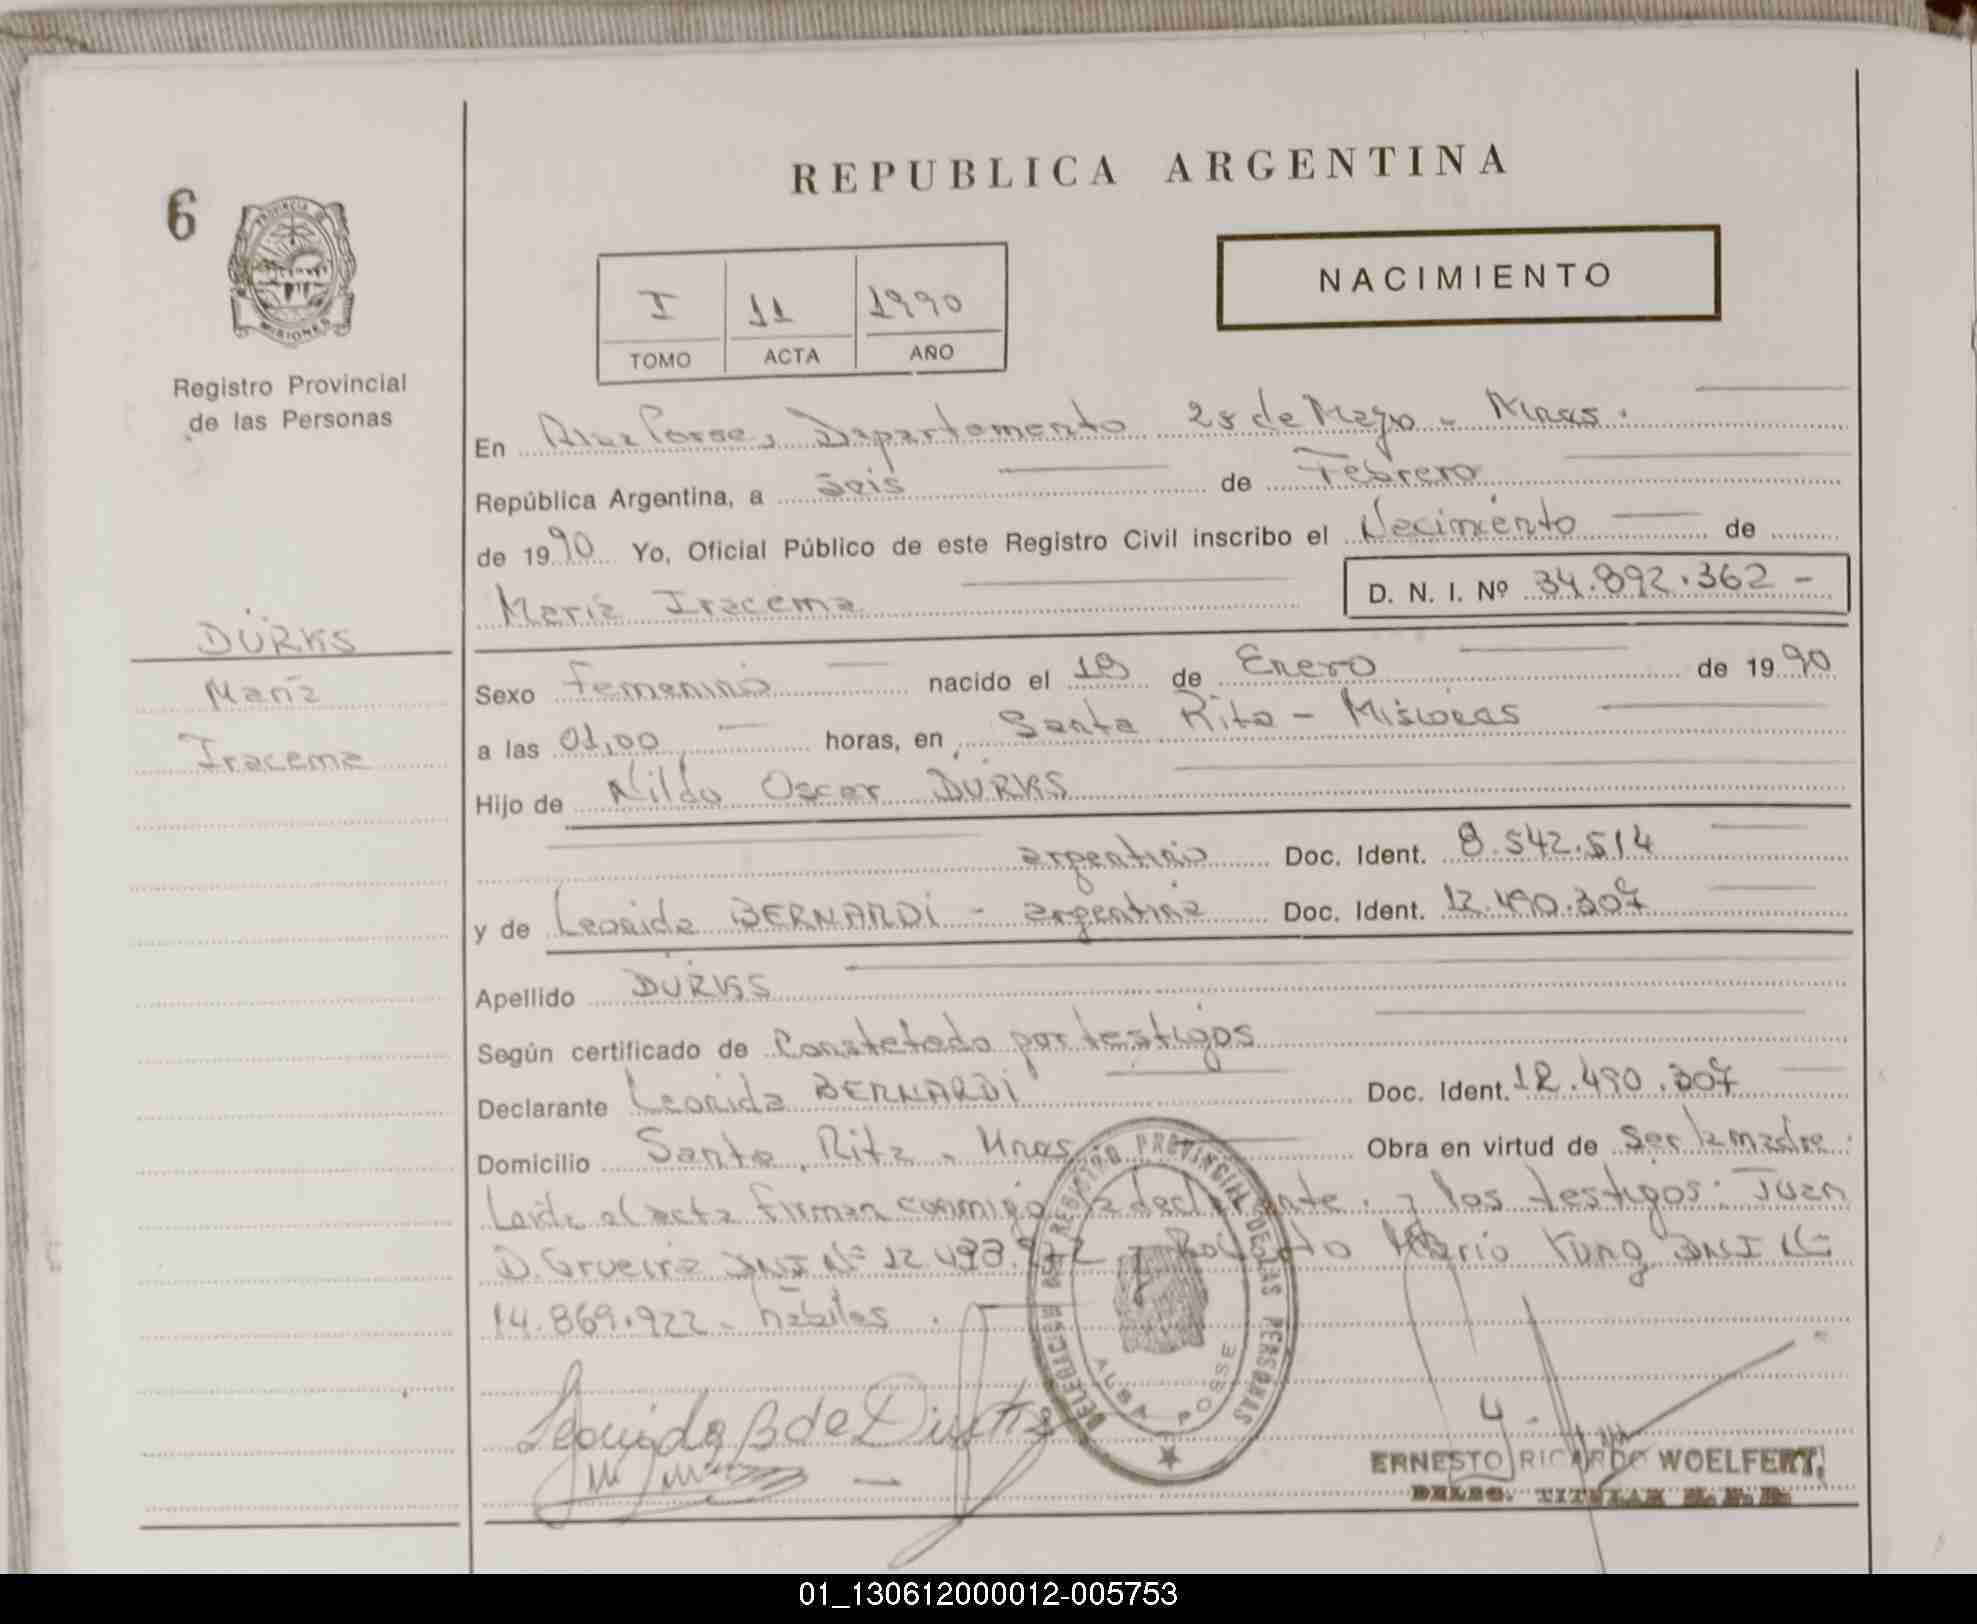 REPUBLICA ARGENTINA
6
PROVINCIA DE
MISIONES
Registro Provincial
de las Personas
NACIMIENTO
I 11 1990
TOMO ACTA AÑO
En Alba Posse, Departamento 25 de Mayo - Mnes.
República Argentina, a Seis de Febrero
de 1990 Yo, Oficial Público de este Registro Civil inscribo el Nacimiento de
María Iracema D. N. I. Nº 34.892.362 -
DÜRKS
María
Iracema
Sexo Femenino nacido el 19 de Enero de 1990
a las 01,00 horas, en Santa Rita - Misiones
Hijo de Nildo Oscar DÜRKS
argentino Doc. Ident. 8.542.514
y de Leonida BERNARDI - argentina Doc. Ident. 12.490.307
Apellido DÜRKS
Según certificado de Constatado por testigos
Declarante Leonida BERNARDI Doc. Ident. 12.490.307
Domicilio Santa Rita - Mnes Obra en virtud de Ser la madre.
Leída el acta firman conmigo la declarante y los testigos: Juan
D. DNI Nº y Mario Kung DNI Nº
14.869.922 - hábiles.
DELEGACION DEL REGISTRO PROVINCIAL DE LAS PERSONAS
ALBA POSSE
Leonida B de
ERNESTO RICARDO WOELFERT
DELEG. TITULAR
01_130612000012-005753